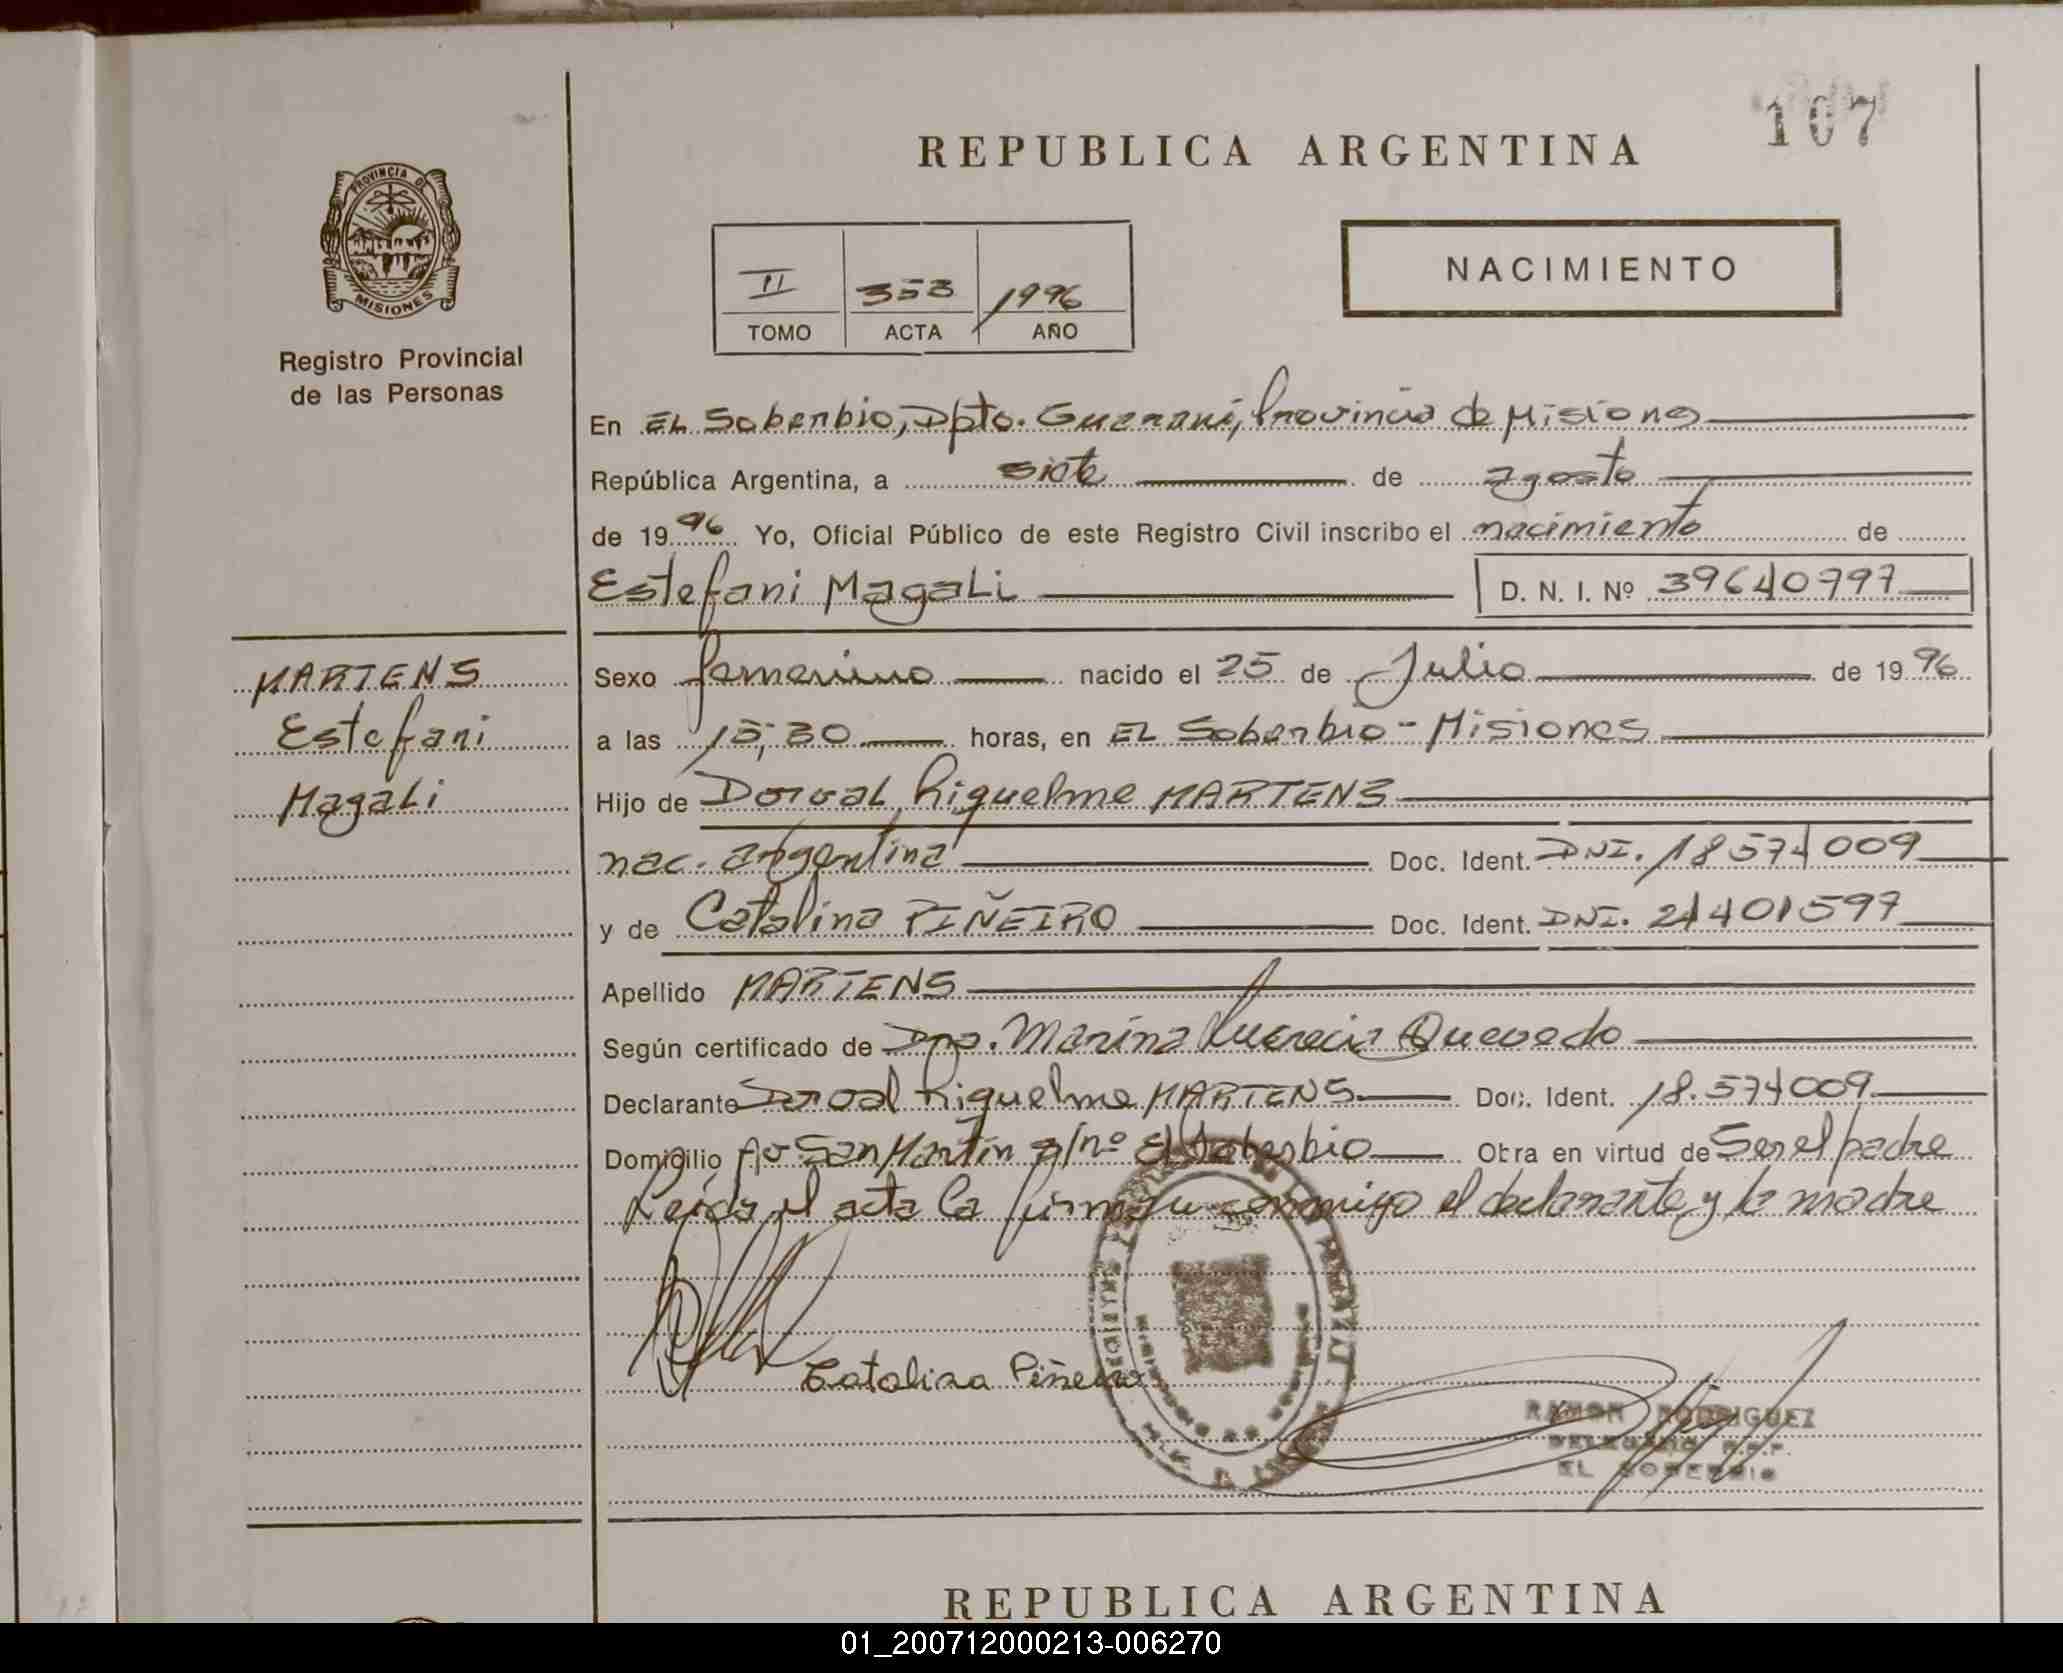 107
REPUBLICA ARGENTINA
PROVINCIA DE
MISIONES
Registro Provincial
de las Personas
NACIMIENTO
II 353 1996
TOMO ACTA AÑO
En EL Soberbio, Dpto. Guarani, Provincia de Misiones
República Argentina, a siete de agosto
de 1996 Yo, Oficial Público de este Registro Civil inscribo el nacimiento de
Estefani Magali D. N. I. Nº 39640797
MARTENS
Estefani
Magali
Sexo femenino nacido el 25 de Julio de 1996
a las 15,30 horas, en EL Soberbio - Misiones
Hijo de Dorval Riquelme MARTENS
nac. argentina Doc. Ident. DNI. 18574009
y de Catalina PIÑEIRO Doc. Ident. DNI. 21401597
Apellido MARTENS
Según certificado de Dra. Marina Lucrecia Quevedo
Declarante Dorval Riquelme MARTENS Doc. Ident. 18.574009
Domicilio San Martín s/nº El Soberbio Obra en virtud de Ser el padre
Leida el acta la firman conmigo el declarante y la madre
Catalina Piñeiro
RAMON RODRIGUEZ
DELEGADO R.P.P.
EL SOBERBIO
REPUBLICA ARGENTINA
01_200712000213-006270